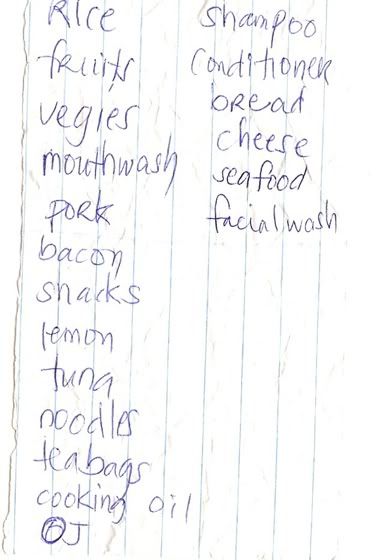 Rice
fruits
vegies
mouthwash
pork
bacon
snacks
lemon
tuna
noodles
teabags
cooking oil
OJ
shampoo
conditioner
bread
cheese
seafood
facial wash